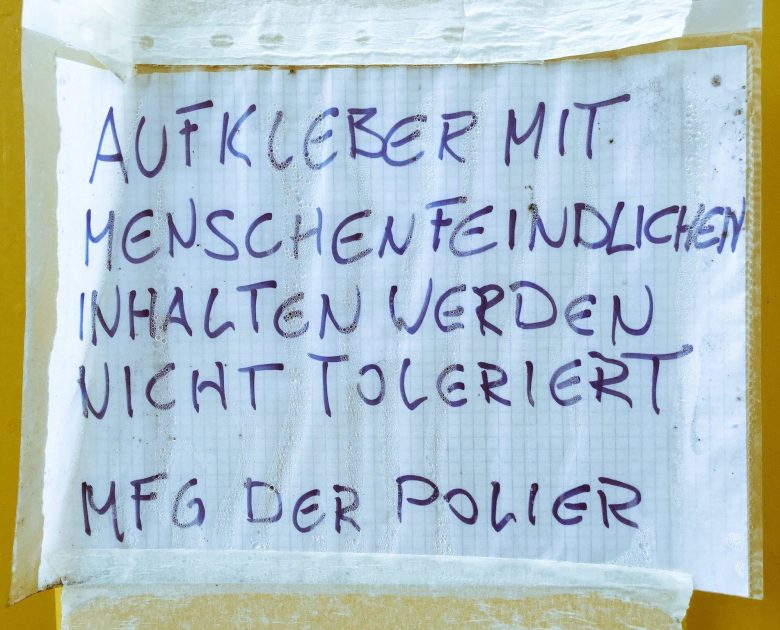 AUFKLEBER MIT
MENSCHENFEINDLICHEN
INHALTEN WERDEN
NICHT TOLERIERT
MFG DER POLIER